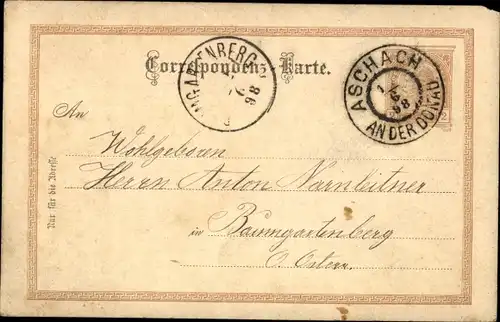 Correspondenz-Karte.
NGARTENBERG
98
ASCHACH
98
AN DER DONAU
2
An
Wohlgeboren
Herrn Anton Narnleitner
in Baumgartenberg
O. Österr.
Nur für die Adresse